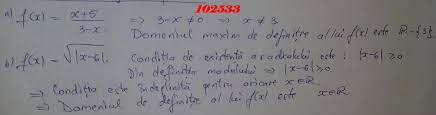 102533
a) f(x) = x+5 / 3-x ⇒ 3-x ≠ 0 ⇒ x ≠ 3
Domeniul maxim de definiție al lui f(x) este R-{3}
b) f(x) = √|x-6|. Condiția de existență a radicalului este: |x-6| ≥ 0
Din definiția modulului ⇒ |x-6| ≥ 0
⇒ Condiția este îndeplinită pentru oricare x∈R
⇒ Domeniul de definiție al lui f(x) este x∈R